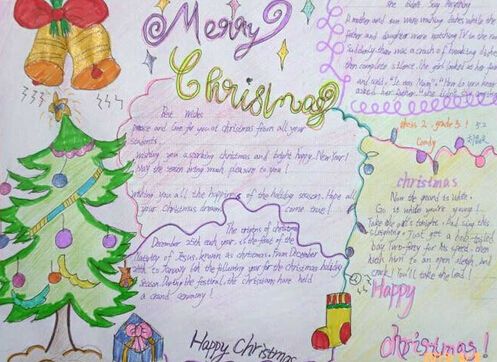 Merry
Christmas
Best Wishes
peace and love for you at christmas from all your
students.
wishing you a sparkling christmas and bright happy New Year!
May the season bring much pleasure to you!
wishing you all the happiness of the holiday season. Hope all
your Christmas dreams come true!
The origins of christmas
December 25th each year, is the feast of the
Nativity of Jesus, known as christmas. From December
24th to January 6th the following year for the christmas holiday
season. During the festival, the christians have held
a grand ceremony!
Happy Christmas
she didn't Say Anything
A mother and son were washing dishes while the
father and daughter were watching TV in the
suddenly there was a crash of breaking dishes
then complete silence. The girl looked at her
and said, "It was Mum". "How do you know"
asked her father.
class 2. grade 3! 32
Candy
christmas
Now the ground is white.
Go it while you're young!
Take the girls tonight. And sing this
Just get a bob-tailed
bay Two-forty for his speed, then
hitch him to an open sleigh and
crack! You'll take the lead!
Happy
christmas!